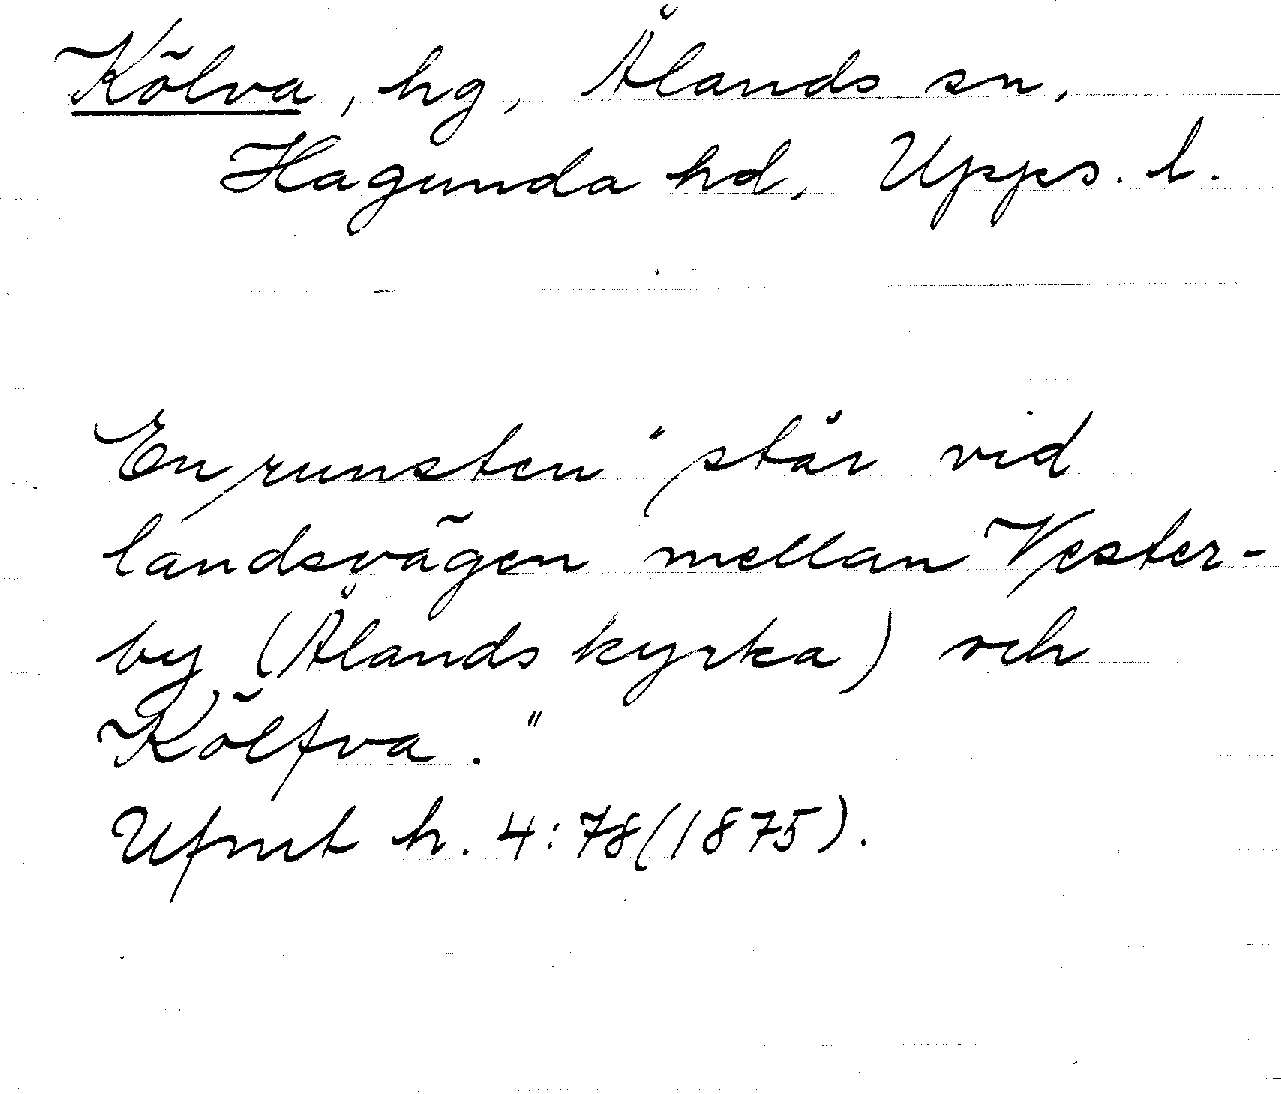 Kölva, hg, Ålands sn,
Hagunda hd, Upps. l.
En runsten "står vid
landsvägen mellan Vester-
by (Ålands kyrka) och
Kölfva."
Ufmt h. 4:78(1875).